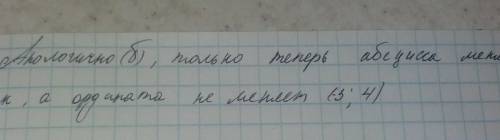 Аналогично (б), только теперь абсцисса меня
к, а ордината не меняет (3; 4)